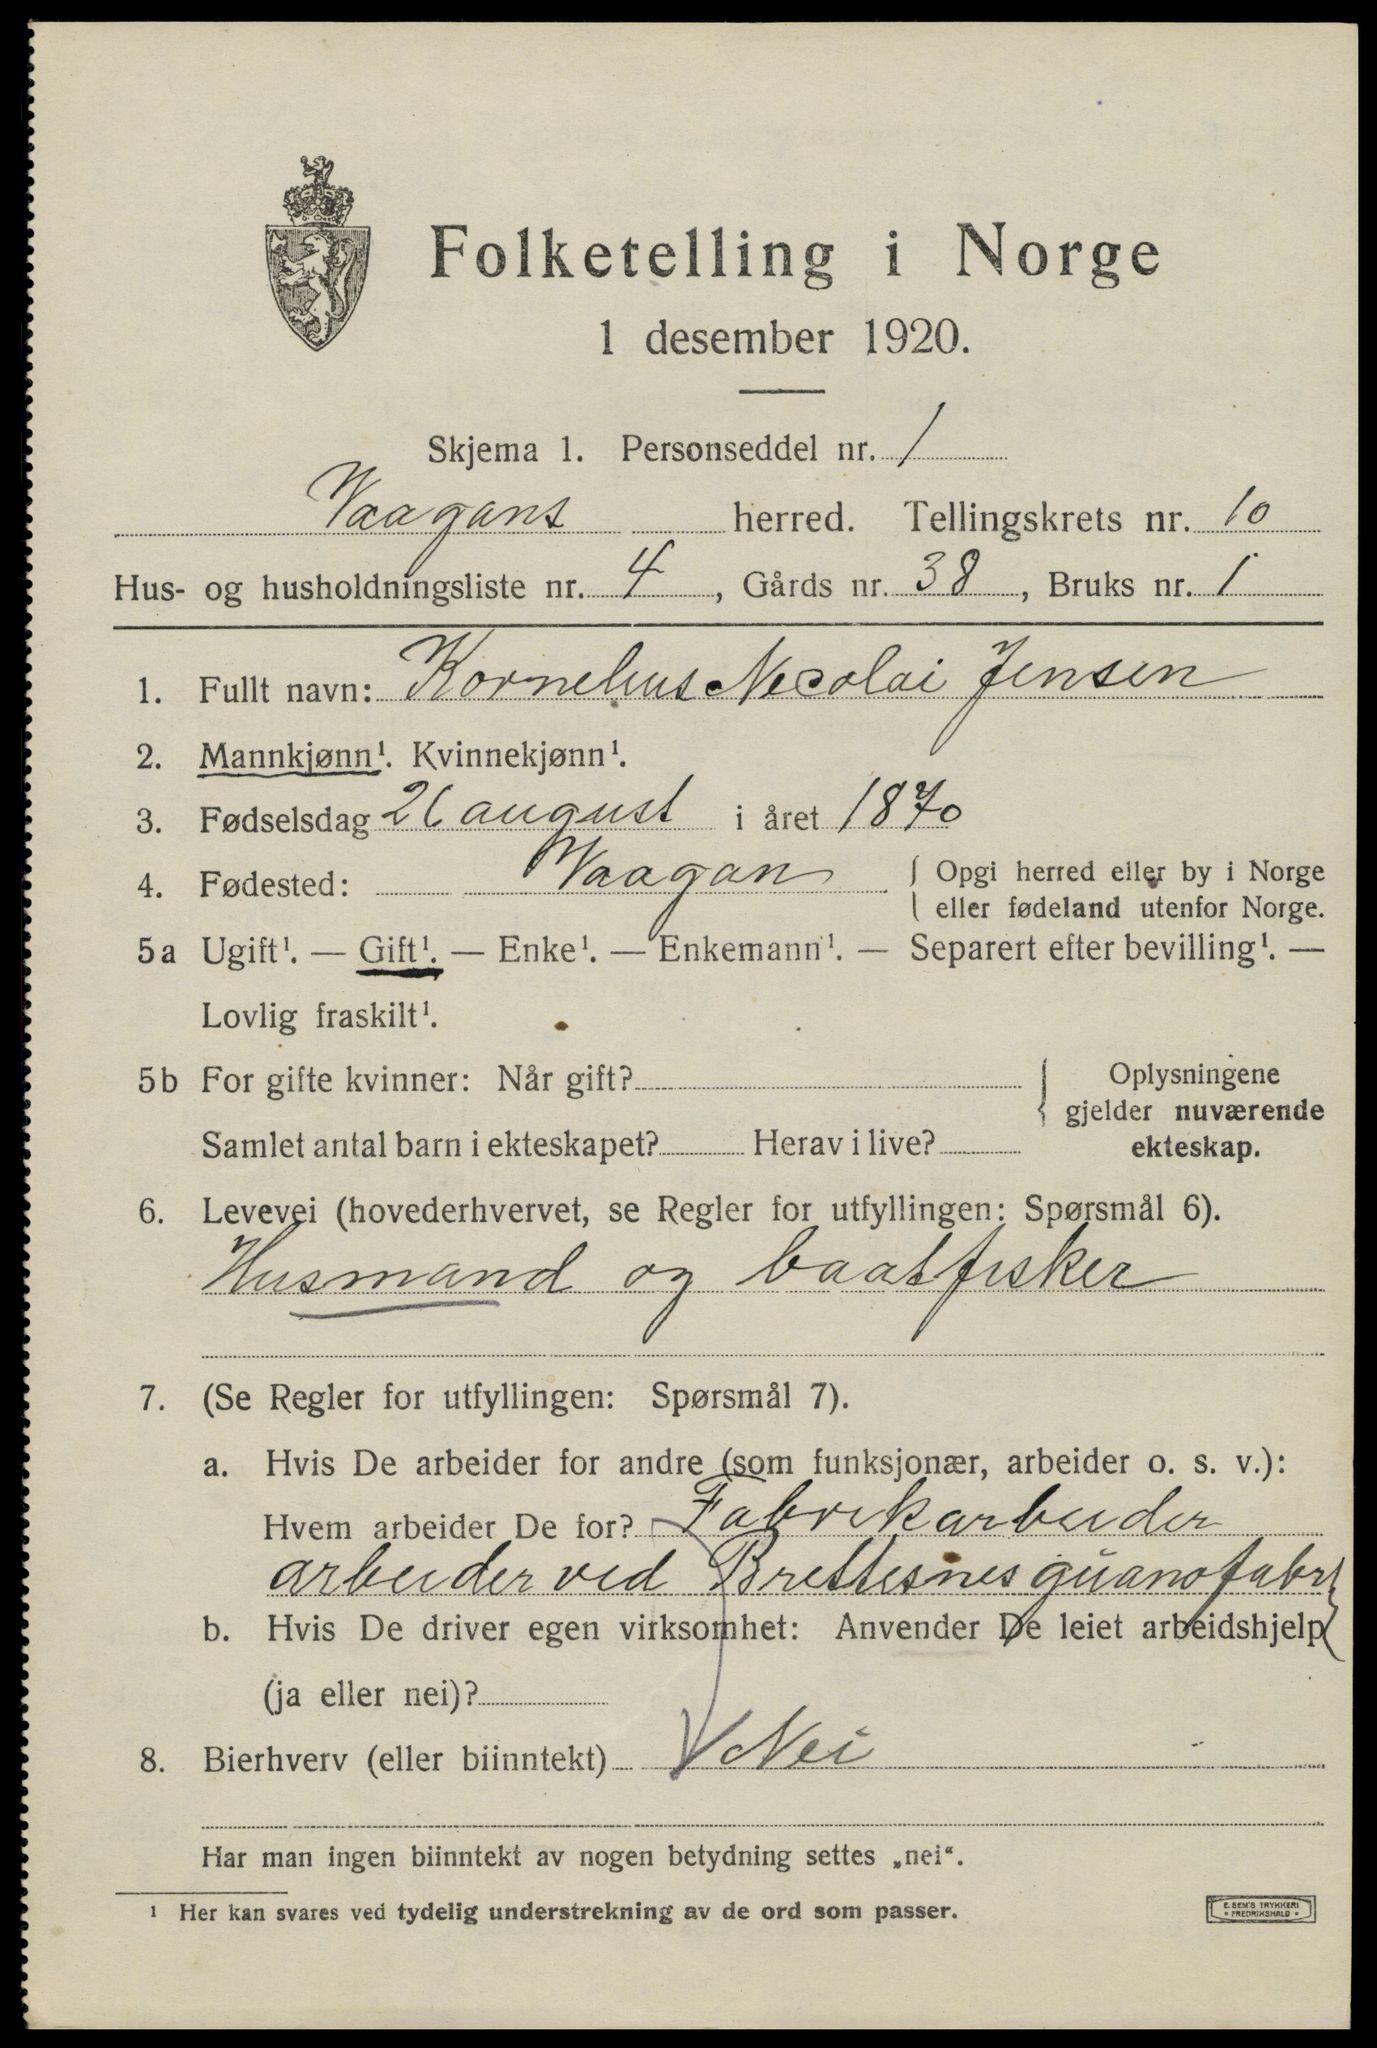 Folketelling i Norge
1 desember 1920.
Skjema 1. Personseddel nr. 1
Vaagans herred. Tellingskrets nr. 10
Hus- og husholdningsliste nr. 4, Gårds nr. 38, Bruks nr. 1
1. Fullt navn: Kornelius Necolai Jensen
2. Mannkjønn¹. Kvinnekjønn¹.
3. Fødselsdag 26 august i året 1870
4. Fødested: Vaagan { Opgi herred eller by i Norge
eller fødeland utenfor Norge.
5a Ugift¹. — Gift¹. — Enke¹. — Enkemann¹. — Separert efter bevilling¹. —
Lovlig fraskilt¹.
5b For gifte kvinner: Når gift? } Oplysningene
gjelder nuværende
Samlet antal barn i ekteskapet? Herav i live? ekteskap.
6. Levevei (hovederhvervet, se Regler for utfyllingen: Spørsmål 6).
Husmand og baatfisker
7. (Se Regler for utfyllingen: Spørsmål 7).
a. Hvis De arbeider for andre (som funksjonær, arbeider o. s. v.):
Hvem arbeider De for? Fabrikarbeider
arbeider ved Brettesnes guanofabr
b. Hvis De driver egen virksomhet: Anvender De leiet arbeidshjelp
(ja eller nei)?
8. Bierhverv (eller biinntekt) Nei
Har man ingen biinntekt av nogen betydning settes „nei“.
¹ Her kan svares ved tydelig understrekning av de ord som passer.
E. SEM'S TRYKKERI
FREDRIKSHALD